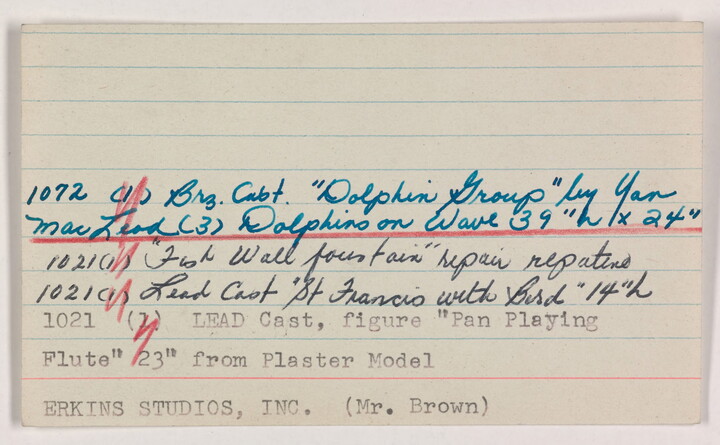 1072 (1) Brz. Cast. "Dolphin Group" by Yan
MacLead (3) Dolphins on Wave 39"h x 24"
1021(1) "Fish Wall fountain" repair repatine
1021(1) Lead Cast "St Francis with Bird" 14"h
1021 (1) LEAD Cast, figure "Pan Playing
Flute" 23" from Plaster Model
ERKINS STUDIOS, INC. (Mr. Brown)